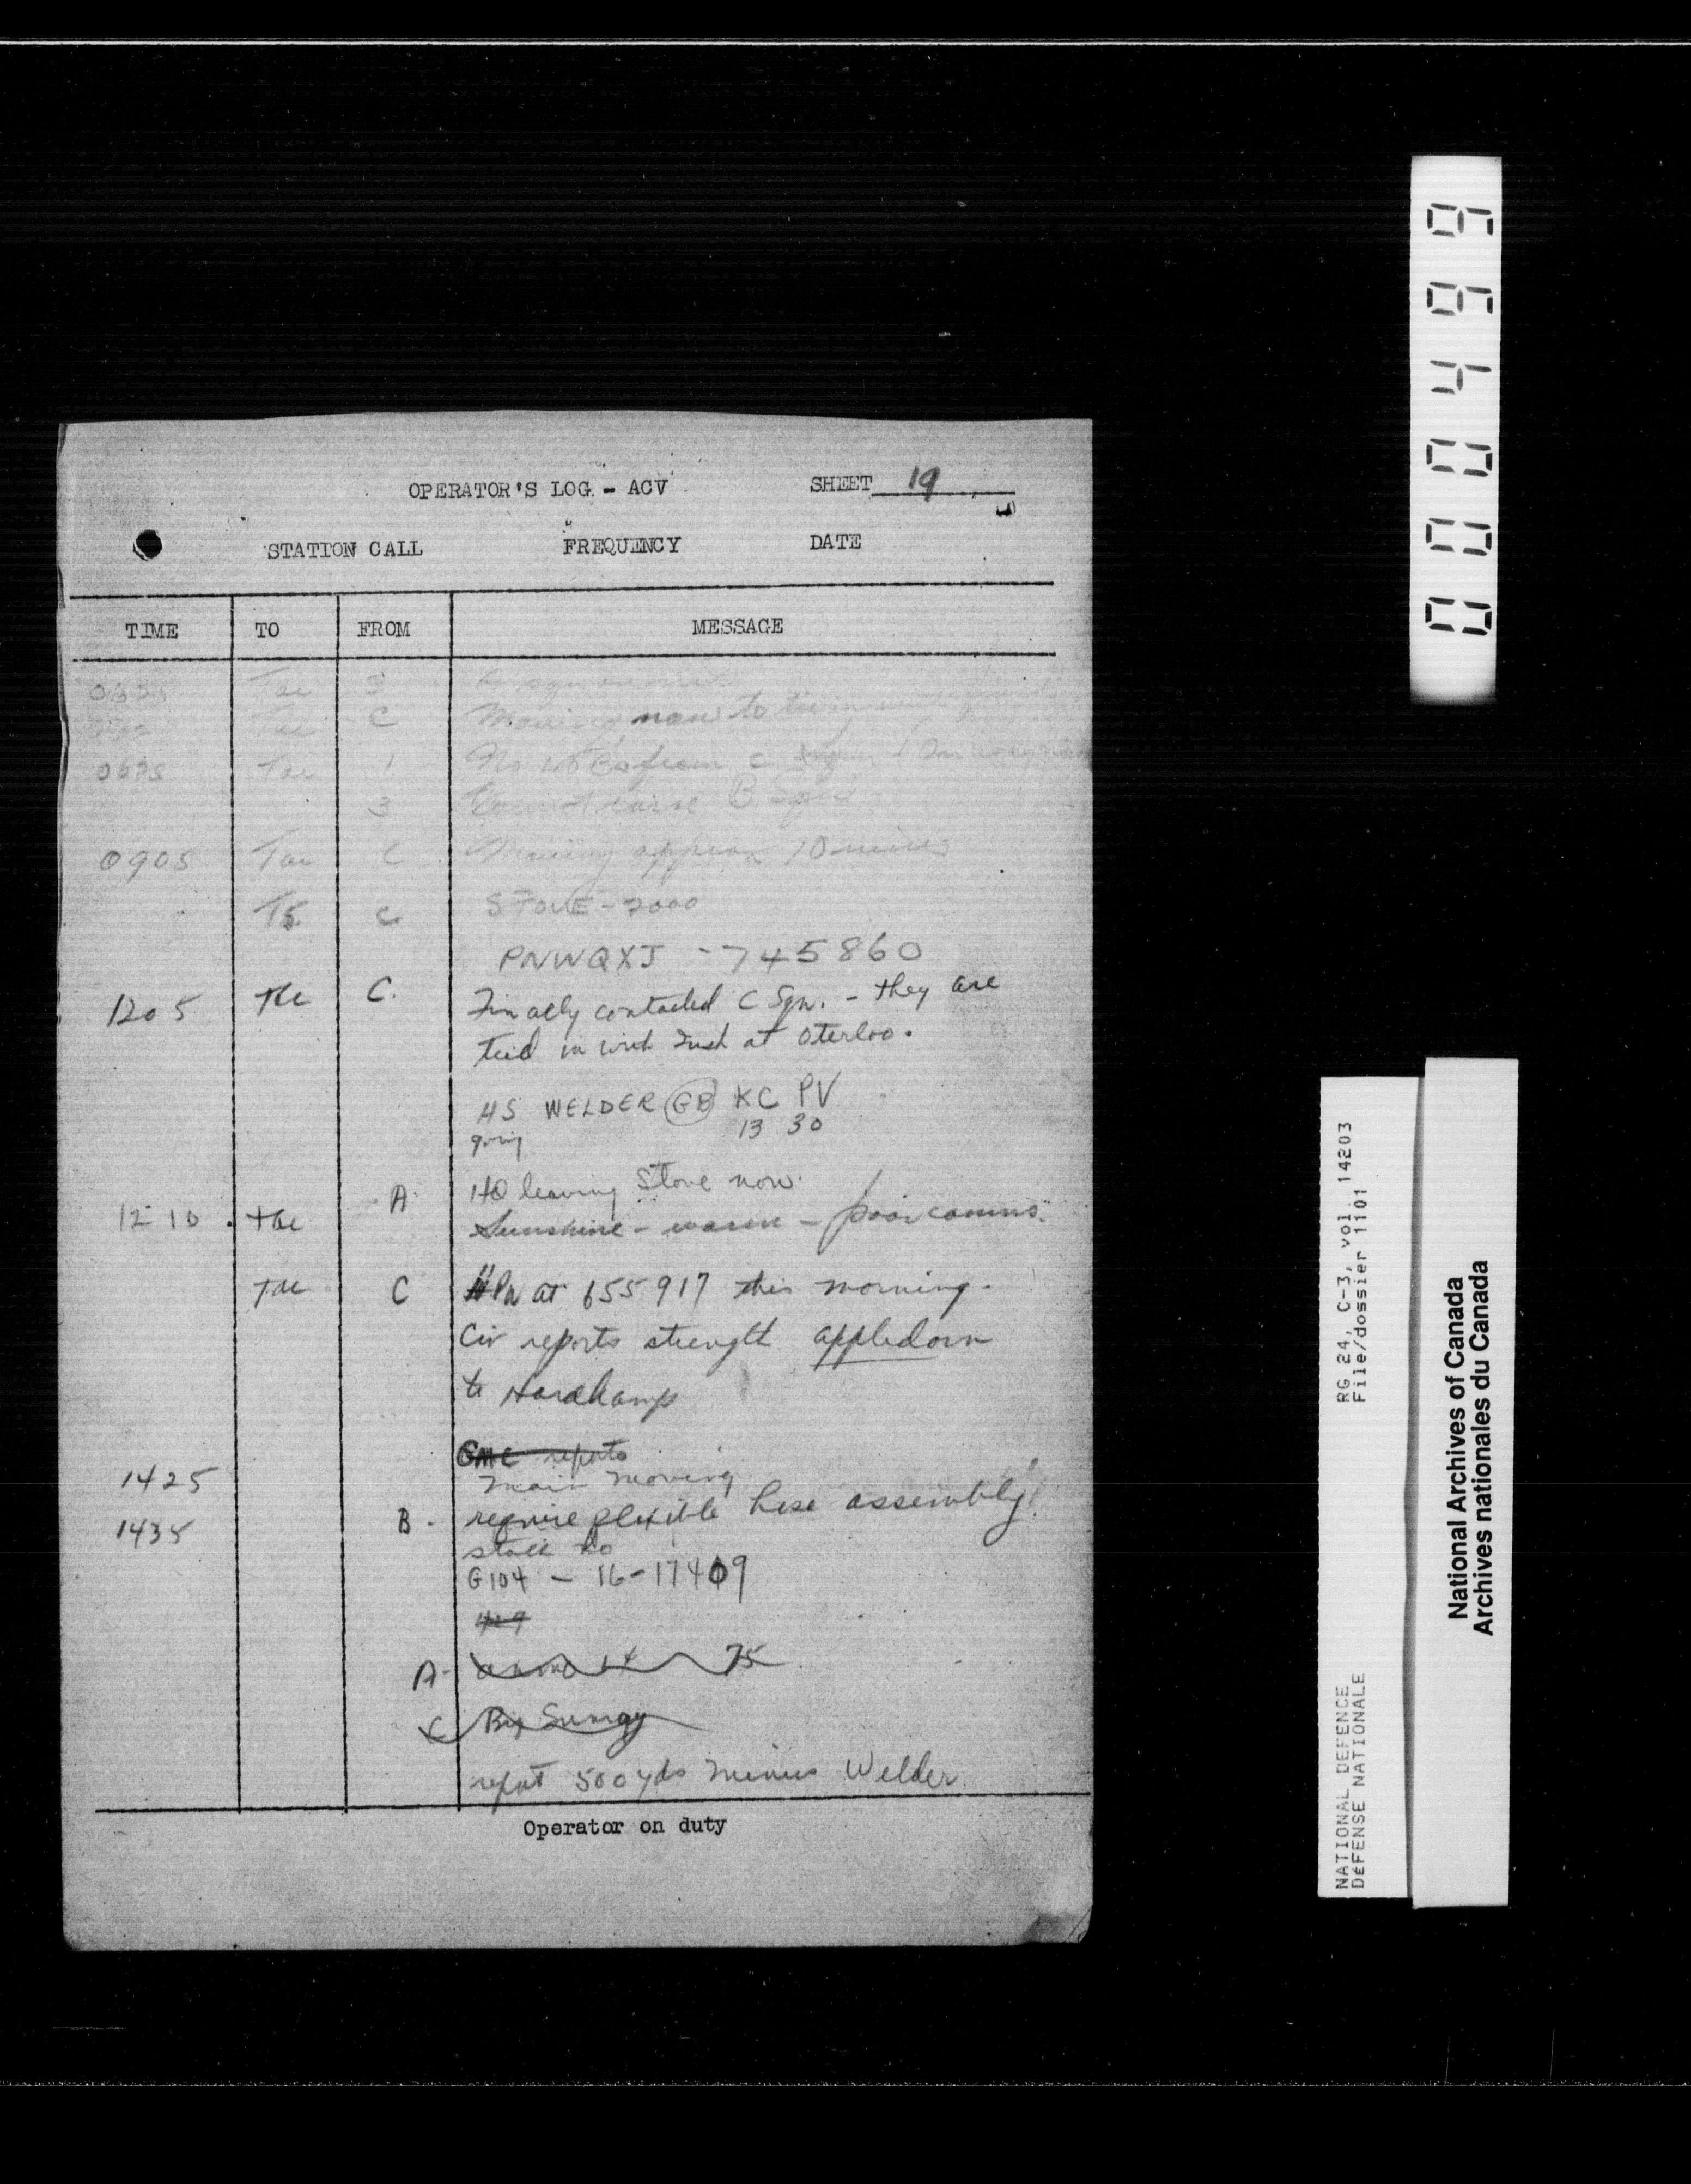 OPERATOR'S LOG - ACV SHEET 19
STATION CALL FREQUENCY DATE
TIME TO FROM MESSAGE
Tac 3 A Sqn
Tac C Moving now to tie in with
Tac 1 No from C
3 Cannot raise B Sqn
0905 Tac C Moving approx 10 mins
C STOVE - 2000
PNWQXJ - 745860
1205 Tac C. Finally contacted C Sqn. - they are
tied in with at Oterloo.
HS WELDER GB KC PV
going 13 30
A HQ leaving Stove now.
1210 Tac Sunshine - warm - poor comms.
Tac C at 655917 this morning.
Civ reports strength appledorn
to Hardkamp
GMC reports
1425 Main moving
1435 B - require flexible hose assembly
stock no
G104 - 16-17409
A - 75
C By
report 500 yds minus Welder
Operator on duty
000499
RG 24, C-3, vol. 14203
File/dossier 1101
NATIONAL DEFENCE
DÉFENSE NATIONALE
National Archives of Canada
Archives nationales du Canada